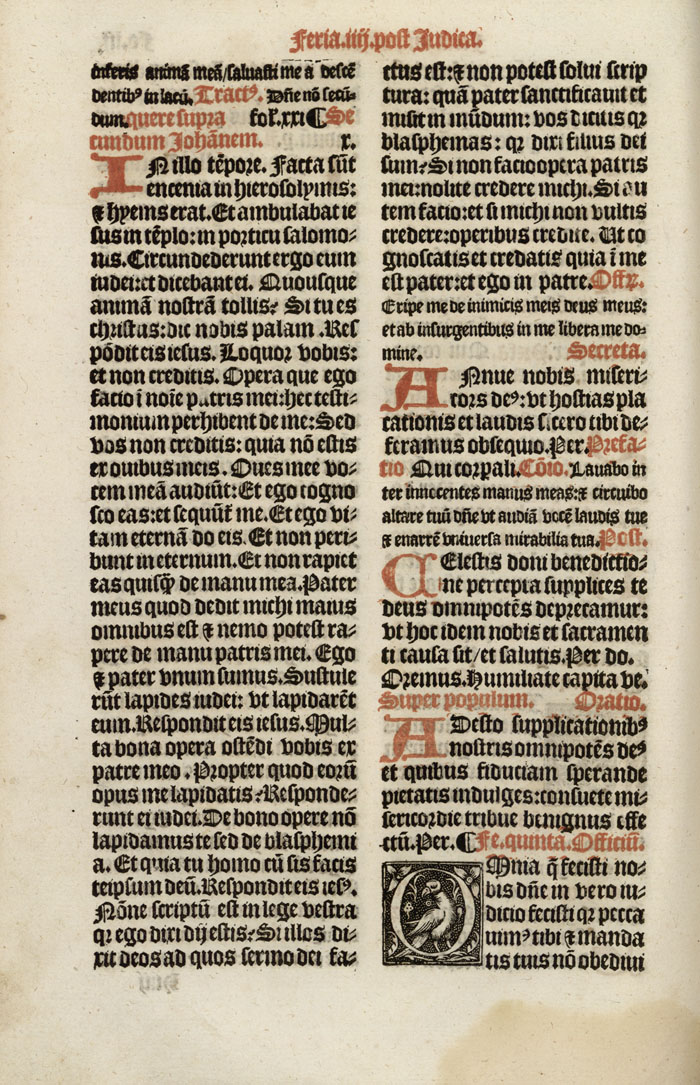 Feria.iiij.post Judica.
inferis animā meā/saluasti me a descē
dentibꝰ in lacū. Tractꝰ. Dñe nō secū-
dum. quere supra fol. xxi ¶ Se
cundum Johānem. x.
IN illo tēpore. Facta sūt
encenia in hierosolymis:
⁊ hyems erat. Et ambulabat ie
sus in tēplo: in porticu salomo-
nis. Circundederunt ergo eum
iudei: et dicebant ei. Quousque
animā nostrā tollis? Si tu es
christus: dic nobis palam. Res
pōdit eis iesus. Loquor vobis:
et non creditis. Opera que ego
facio ī noīe patris mei: hec testi-
monium perhibent de me: Sed
vos non creditis: quia nō estis
ex ouibus meis. Oues mee vo-
cem meā audiūt: Et ego cogno
sco eas: et sequūt̃ me. Et ego vi-
tam eternā do eis. Et non peri-
bunt in eternum. Et non rapiet
eas quisq̄ȝ de manu mea. Pater
meus quod dedit michi maius
omnibus est ⁊ nemo potest ra-
pere de manu patris mei. Ego
⁊ pater vnum sumus. Sustule
rūt lapides iudei: vt lapidarēt
eum. Respondit eis iesus. Mul-
ta bona opera ostēdi vobis ex
patre meo. Propter quod eorū
opus me lapidatis? Responde-
runt ei iudei. De bono opere nō
lapidamus te sed de blasphemi
a. Et quia tu homo cū sis facis
teipsum deū. Respondit eis iesꝰ.
Nōne scriptū est in lege vestra
qꝛ ego dixi dij estis? Si illos di-
xit deos ad quos sermo dei fa-
ctus est: ⁊ non potest solui scrip
tura: quā pater sanctificauit et
misit in mūdum: vos dicitis qꝛ
blasphemas: qꝛ dixi filius dei
sum? Si non facio opera patris
mei: nolite credere michi. Si au
tem facio: et si michi non vultis
credere: operibus credite. Ut co
gnoscatis et credatis quia ī me
est pater: et ego in patre. Offꝝ.
Eripe me de inimicis meis deus meus:
et ab insurgentibus in me libera me do-
mine. Secreta.
ANnue nobis miseri-
cors deꝰ: vt hostias pla
cationis et laudis sicero tibi de-
feramus obsequio. Per. Prefa-
tio Qui corpali. Cōio. Lauabo in
ter innocentes manus meas: ⁊ circuibo
altare tuū dñe vt audiā vocē laudis tue
⁊ enarrē vniuersa mirabilia tua. Post.
CElestis doni benedictio-
ne percepta supplices te
deus omnipotēs deprecamur:
vt hoc idem nobis et sacramen
ti causa sit/et salutis. Per do.
Oremus. Humiliate capita ve.
Super populum. Oratio.
ADesto supplicationibꝰ
nostris omnipotēs deꝰ
et quibus fiduciam sperande
pietatis indulges: consuete mi-
sericordie tribue benignus effe
ctū. Per. ¶ Fe. quinta. Officiū.
OMnia q̄ fecisti no-
bis dñe in vero iu-
dicio fecisti qꝛ pecca
uimꝰ tibi ⁊ manda
tis tuis nō obediui